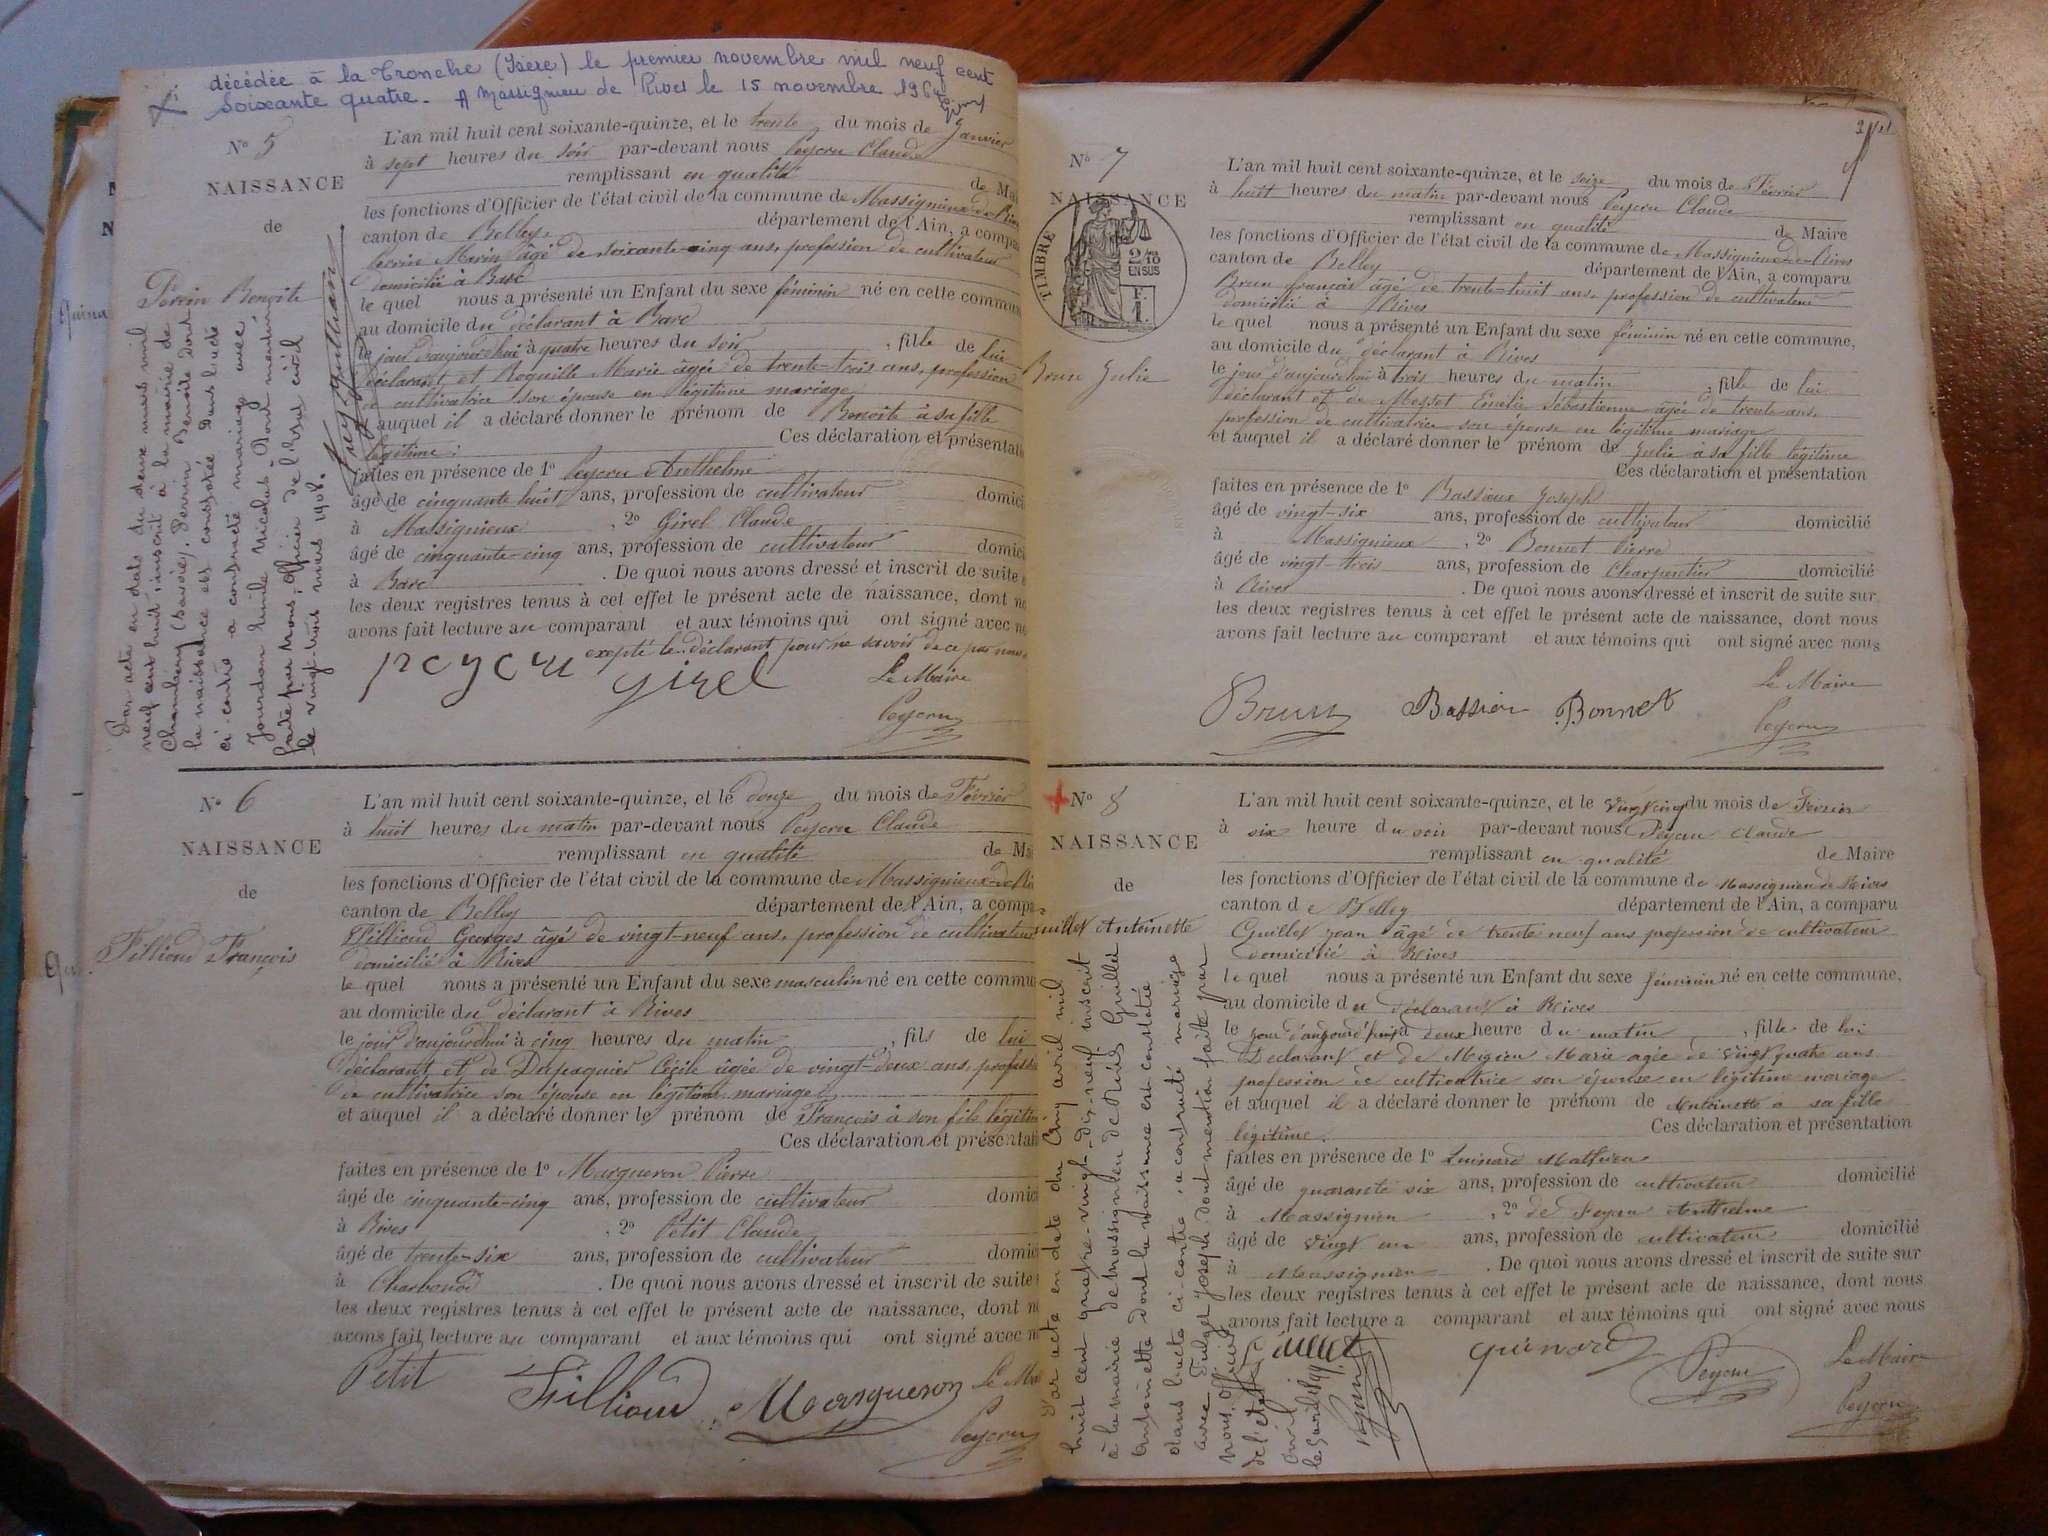 décédée à la Tronche (Isère) le premier novembre mil neuf cent
soixante quatre. A Massignieu de Rives le 15 novembre 1964
N° 5
NAISSANCE
de
Perrin Benoîte
L'an mil huit cent soixante-quinze, et le trente du mois de Janvier
à sept heures du soir par-devant nous Peycru Claude
remplissant en qualité de Mai
les fonctions d'Officier de l'état civil de la commune de Massignieux-de-Rives
canton de Belley département de l'Ain, a compa
Perrin Marin âgé de soixante-cinq ans, profession de cultivateur
domicilié à Barc
le quel nous a présenté un Enfant du sexe féminin né en cette commun
au domicile du déclarant à Barc
le jour d'aujourd'hui à quatre heures du soir , fille de lui
déclarant et Roquille Marie âgée de trente-trois ans, profession
de cultivatrice son épouse en légitime mariage
auquel il a déclaré donner le prénom de Benoite à sa fille
légitime. Ces déclaration et présentati
faites en présence de 1° Peycru Anthelme
âgé de cinquante huit ans, profession de cultivateur domici
à Massignieux , 2° Girel Claude
âgé de cinquante-cinq ans, profession de cultivateur domici
à Barc . De quoi nous avons dressé et inscrit de suite
les deux registres tenus à cet effet le présent acte de naissance, dont no
avons fait lecture au comparant et aux témoins qui ont signé avec n
exepté le déclarant pour ne savoir de ce par nous
peycru girel Le Maire
Peycru
Par acte en date du deux mars mil
neuf cent huit, inscrit à la mairie de
Chambéry (Savoie), Perrin Benoîte dont
la naissance est constatée dans l'acte
ci-contre a contracté mariage avec
Jourdan Emile Nicolas. Dont mention
faite par Nous, officier de l'état civil
le vingt-trois mars 1908.
N° 6
NAISSANCE
de
Fillioud François
L'an mil huit cent soixante-quinze, et le douze du mois de Février
à huit heures du matin par-devant nous Peycru Claude
remplissant en qualité de Mai
les fonctions d'Officier de l'état civil de la commune de Massignieux-de-Ri
canton de Belley département de l'Ain, a compa
Fillioud Georges âgé de vingt-neuf ans, profession de cultivateur
domicilié à Rives
le quel nous a présenté un Enfant du sexe masculin né en cette commu
au domicile du déclarant à Rives
le jour d'aujourdhui à cinq heures du matin , fils de lui
déclarant et de Dupasquier Cécile âgée de vingt-deux ans, profess
de cultivatrice son épouse en légitime mariage
et auquel il a déclaré donner le prénom de François à son fils légitim
Ces déclaration et présentati
faites en présence de 1° Margueron Pierre
âgé de cinquante-cinq ans, profession de cultivateur domici
à Rives , 2° Petit Claude
âgé de trente-six ans, profession de cultivateur domici
à Charbonod . De quoi nous avons dressé et inscrit de suite
les deux registres tenus à cet effet le présent acte de naissance, dont n
avons fait lecture au comparant et aux témoins qui ont signé avec n
Petit Fillioud Margueron Le Mai
Peycru
N° 7
NAISSANCE
TIMBRE
2/10
EN SUS
F.
1.
Brun Julie
L'an mil huit cent soixante-quinze, et le seize du mois de Février
à huit heures du matin par-devant nous Peycru Claude
remplissant en qualité de Maire
les fonctions d'Officier de l'état civil de la commune de Massignieux-de-Rives
canton de Belley département de l'Ain, a comparu
Brun françois âgé de trente-huit ans, profession de cultivateur
domicilié à Rives
le quel nous a présenté un Enfant du sexe féminin né en cette commune,
au domicile du déclarant à Rives
le jour d'aujourdhui à trois heures du matin , fille de lui
déclarant et de Messet Emélie Sébastienne âgée de trente ans,
profession de cultivatrice son épouse en légitime mariage
et auquel il a déclaré donner le prénom de Julie à sa fille légitime
Ces déclaration et présentation
faites en présence de 1° Bassieux Joseph
âgé de vingt-six ans, profession de cultivateur domicilié
à Massignieux , 2° Bonnet Pierre
âgé de vingt-trois ans, profession de Charpentier domicilié
à Rives . De quoi nous avons dressé et inscrit de suite sur
les deux registres tenus à cet effet le présent acte de naissance, dont nous
avons fait lecture au comparant et aux témoins qui ont signé avec nous
Brun Bassieu Bonnet Le Maire
Peycru
N° 8
NAISSANCE
de
uillet Antoinette
L'an mil huit cent soixante-quinze, et le vingt cinq du mois de Février
à six heure du soir par-devant nous Peycru Claude
remplissant en qualité de Maire
les fonctions d'Officier de l'état civil de la commune de Massignieu de Rives
canton de Belley département de l'Ain, a comparu
Guillet jean âgé de trente neuf ans profession de cultivateur
domicilié à Rives
le quel nous a présenté un Enfant du sexe féminin né en cette commune,
au domicile du déclarant à Rives
le jour d'aujourd'hui à deux heure du matin , fille de lui
Déclarant et de Migieu Marie agée de vingt quatre ans
profession de cultivatrice son épouse en légitime mariage
et auquel il a déclaré donner le prénom de Antoinette à sa fille
légitime. Ces déclaration et présentation
faites en présence de 1° Guinard Mathieu
âgé de quarante six ans, profession de cultivateur domicilié
à Massignieu , 2° de Peycru Anthelme
âgé de vingt un ans, profession de cultivateur domicilié
à Massignieu . De quoi nous avons dressé et inscrit de suite sur
les deux registres tenus à cet effet le présent acte de naissance, dont nous
avons fait lecture a comparant et aux témoins qui ont signé avec nous
Guillet guinard Peycru Le Maire
Peycru
Par acte en date du cinq avril mil
huit cent quatre-vingt-dix-neuf inscrit
à la mairie de Massignieu de Rives Guillet
Antoinette dont la naissance est constatée
dans l'acte ci-contre, a contracté mariage
avec Joseph dont mention faite par
nous, officier
de l'état